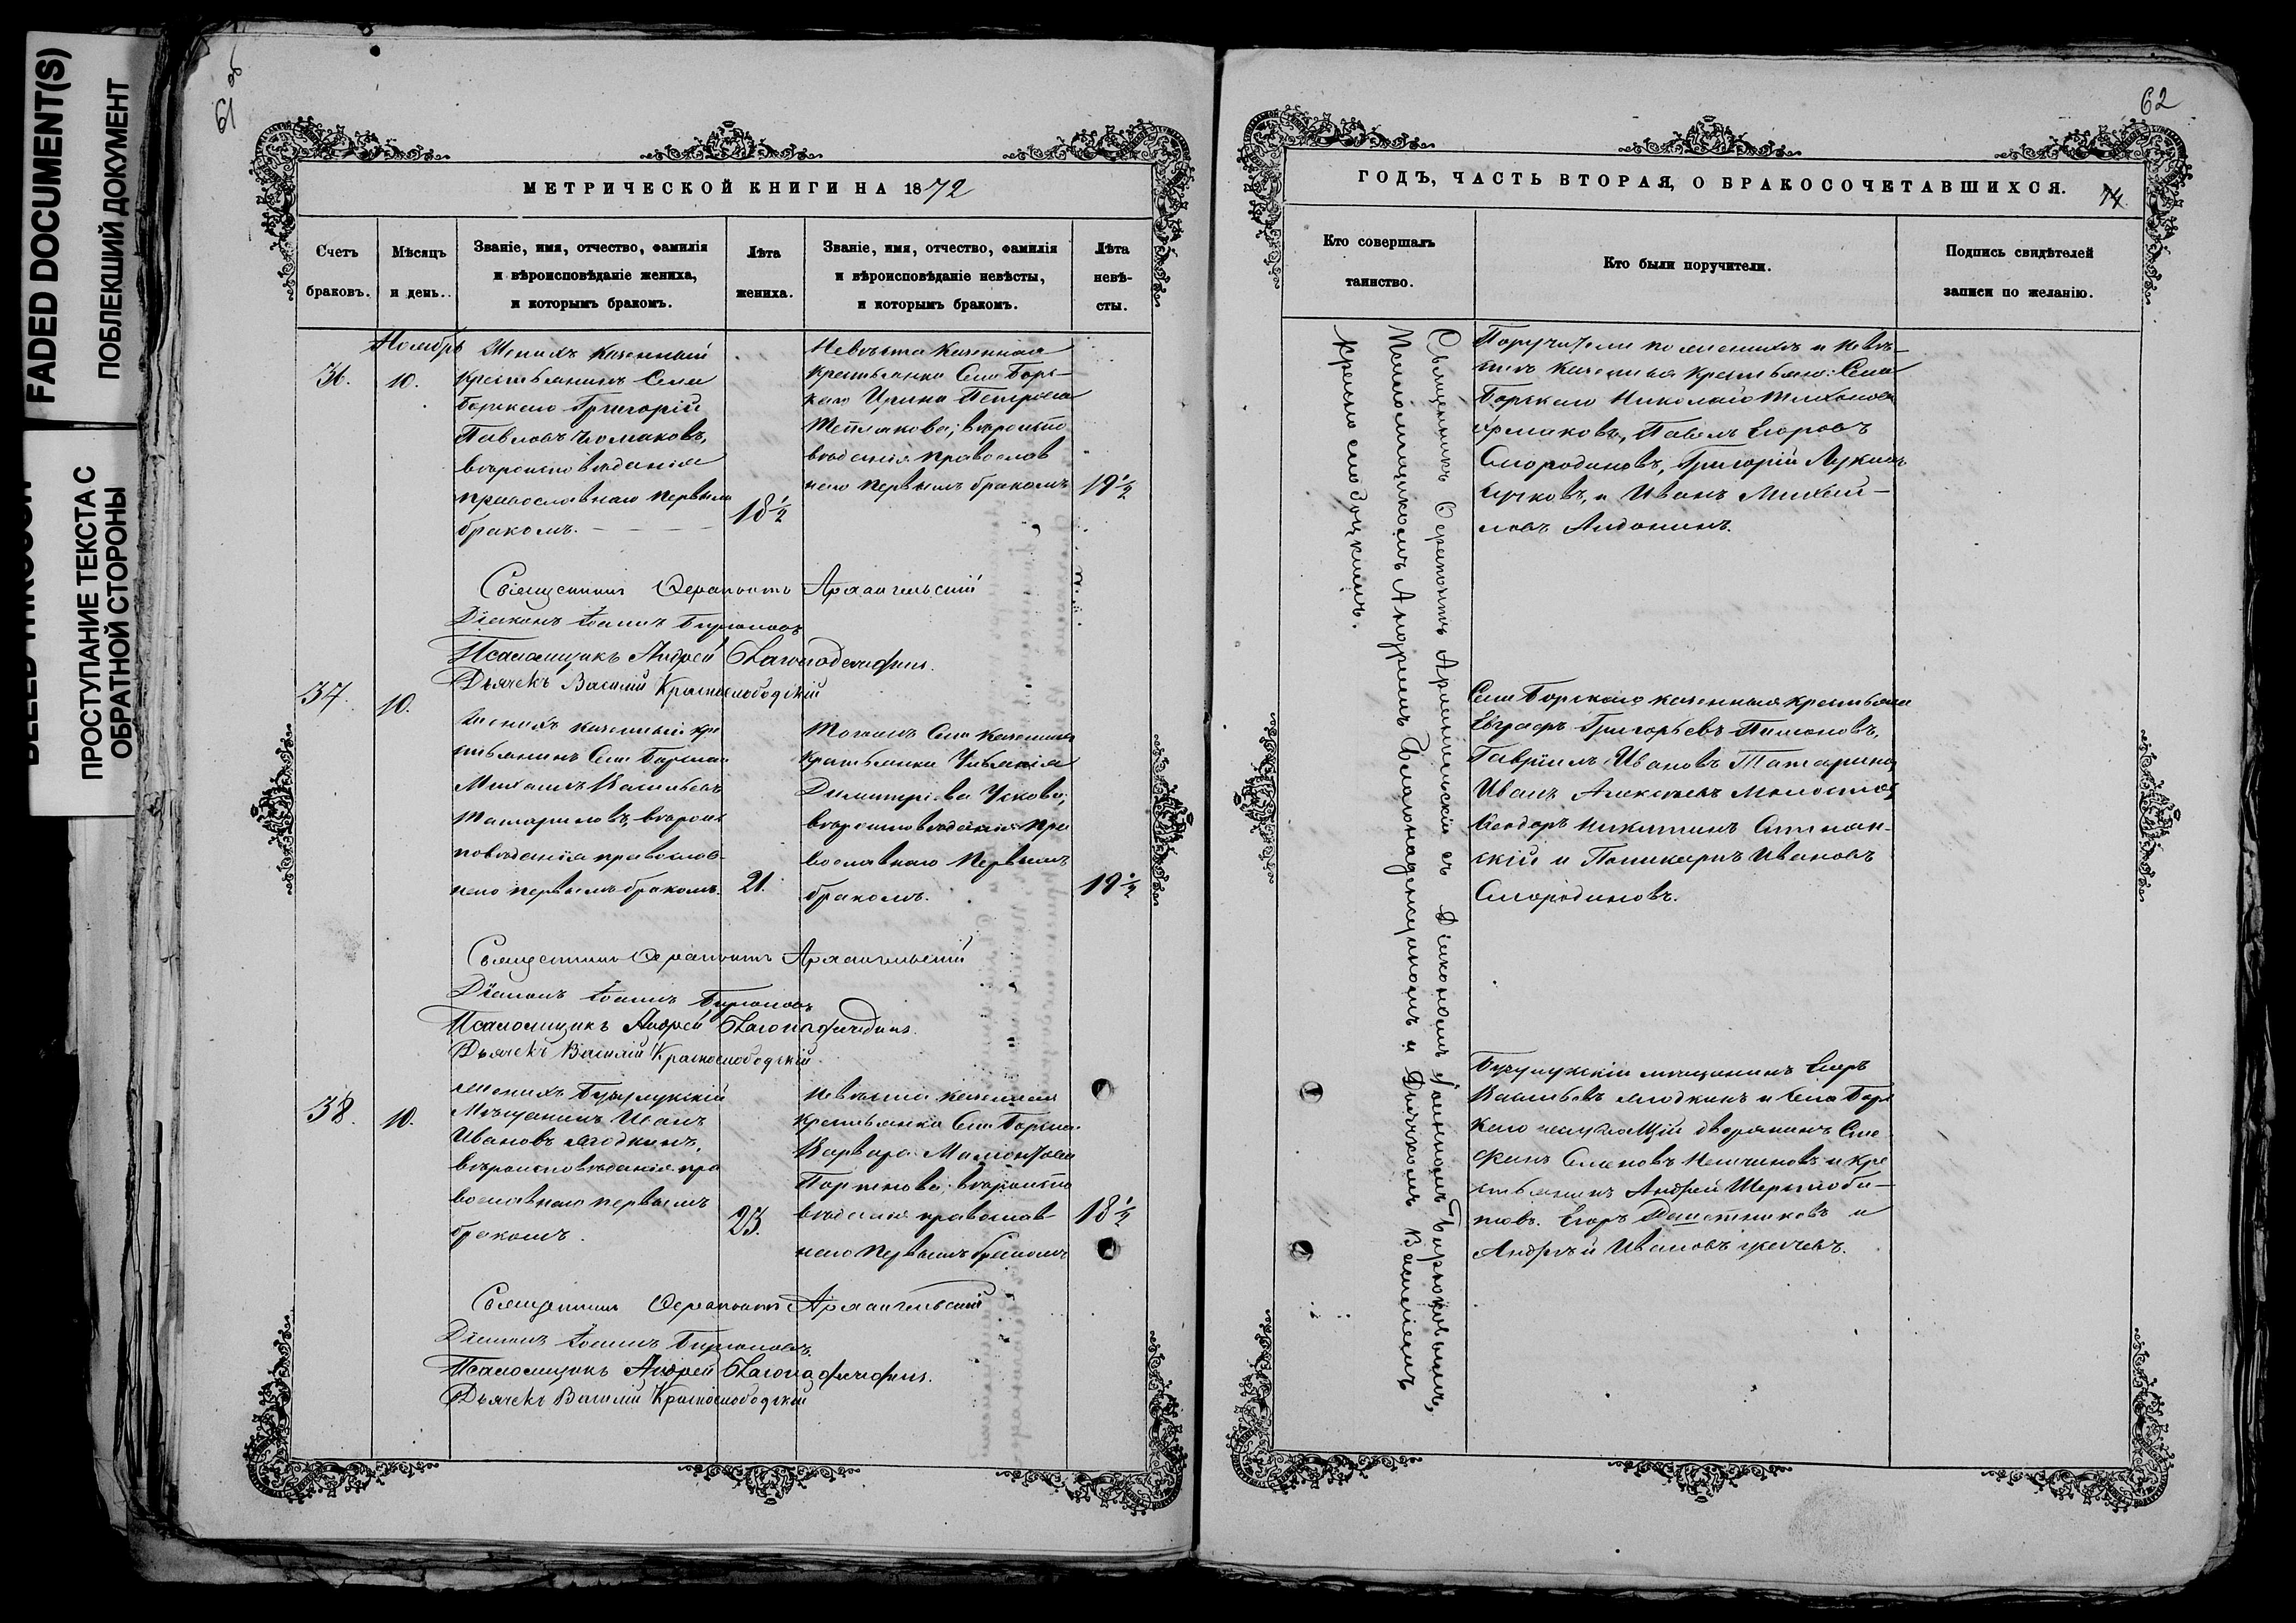 FADED DOCUMENT(S)
ПОБЛЕКШИЙ ДОКУМЕНТ
ПРОСТУПАНИЕ ТЕКСТА С
ОБРАТНОЙ СТОРОНЫ
61 об
МЕТРИЧЕСКОЙ КНИГИ НА 1872
Счетъ браковъ.
Мѣсяцъ и день.
Званіе, имя, отчество, фамилія
и вѣроисповѣданіе жениха,
и которымъ бракомъ.
Лѣта жениха.
Званіе, имя, отчество, фамилія
и вѣроисповѣданіе невѣсты,
и которымъ бракомъ.
Лѣта невѣ-сты.
Ноябрь
36.
10.
Женихъ казенный
крестьянинъ Села
Борскаго Григорій
Павловъ
вѣроисповѣданія
православнаго первымъ
бракомъ.
18 1/2
Невѣста казенная
крестьянка Села Борс-
каго Ирина Петрова
вѣроиспо
вѣданія православ
наго первымъ бракомъ
19 1/2
Священникъ Ѳерапонтъ Архангельскій
Діаконъ Іоаннъ Бирюковъ
Псаломщикъ Андрей Благонадеждинъ.
Дьячекъ Василій Краснослободскій
37.
10.
Женихъ казенный кре
стьянинъ Села Борскаго
Михаилъ Васильевъ
вѣроис
повѣданія православ-
наго первымъ бракомъ.
21.
Тогожъ Села казенная
крестьянка Ульянія
Димитріева Ускова,
вѣроисповѣданія пра
вославнаго первымъ
бракомъ.
19 1/2
Священникъ Ѳерапонтъ Архангельскій
Діаконъ Іоаннъ Бирюковъ
Псаломщикъ Андрей Благонадеждинъ.
Дьячекъ Василій Краснослободскій
38.
10.
Женихъ Бузулукскій
Мѣщанинъ Иванъ
Ивановъ Ягодкинъ,
вѣроисповѣданія пра
вославнаго первымъ
бракомъ.
23.
Невѣста казенная
крестьянка Села Борска
Варвара
вѣроиспо
вѣданія православ
наго первымъ бракомъ
18 1/2
Священникъ Ѳерапонтъ Архангельскій
Діаконъ Іоаннъ Бирюковъ.
Псаломщикъ Андрей Благонадеждинъ.
Дьячекъ Василій Краснослободскій
62
ГОДЪ, ЧАСТЬ ВТОРАЯ, О БРАКОСОЧЕТАВШИХСЯ.
Кто совершалъ
таинство.
Кто были поручители.
Подпись свидѣтелей
записи по желанію.
Священникъ Ѳерапонтъ Архангельскій съ Діакономъ Іоанномъ Бирюковымъ,
Псаломщикомъ Андреемъ Благонадеждинымъ и Дьячкомъ Василіемъ
Краснослободскимъ.
Поручители по женихѣ и невѣ-
стѣ казенныя крестьяне Села
Борскаго Николай Тихоновъ
Ермаковъ, Павелъ Егоровъ
Смородиновъ, Григорій Лукинъ
и Иванъ Михай-
ловъ Андонинъ.
Села Борскаго казенныя крестьяне
Евграфъ Григорьевъ
Гавріилъ Ивановъ
Иванъ Алексѣевъ
Ѳеодоръ Никитинъ
скій и Поликарпъ Ивановъ
Смородиновъ.
Бузулукскій мѣщанинъ Егоръ
Васильевъ Ягодкинъ и Села Борс
каго дворянинъ Сте
фанъ Семеновъ и кре
стьянинъ Андрей
Егоръ Решетниковъ и
Андрей Ивановъ